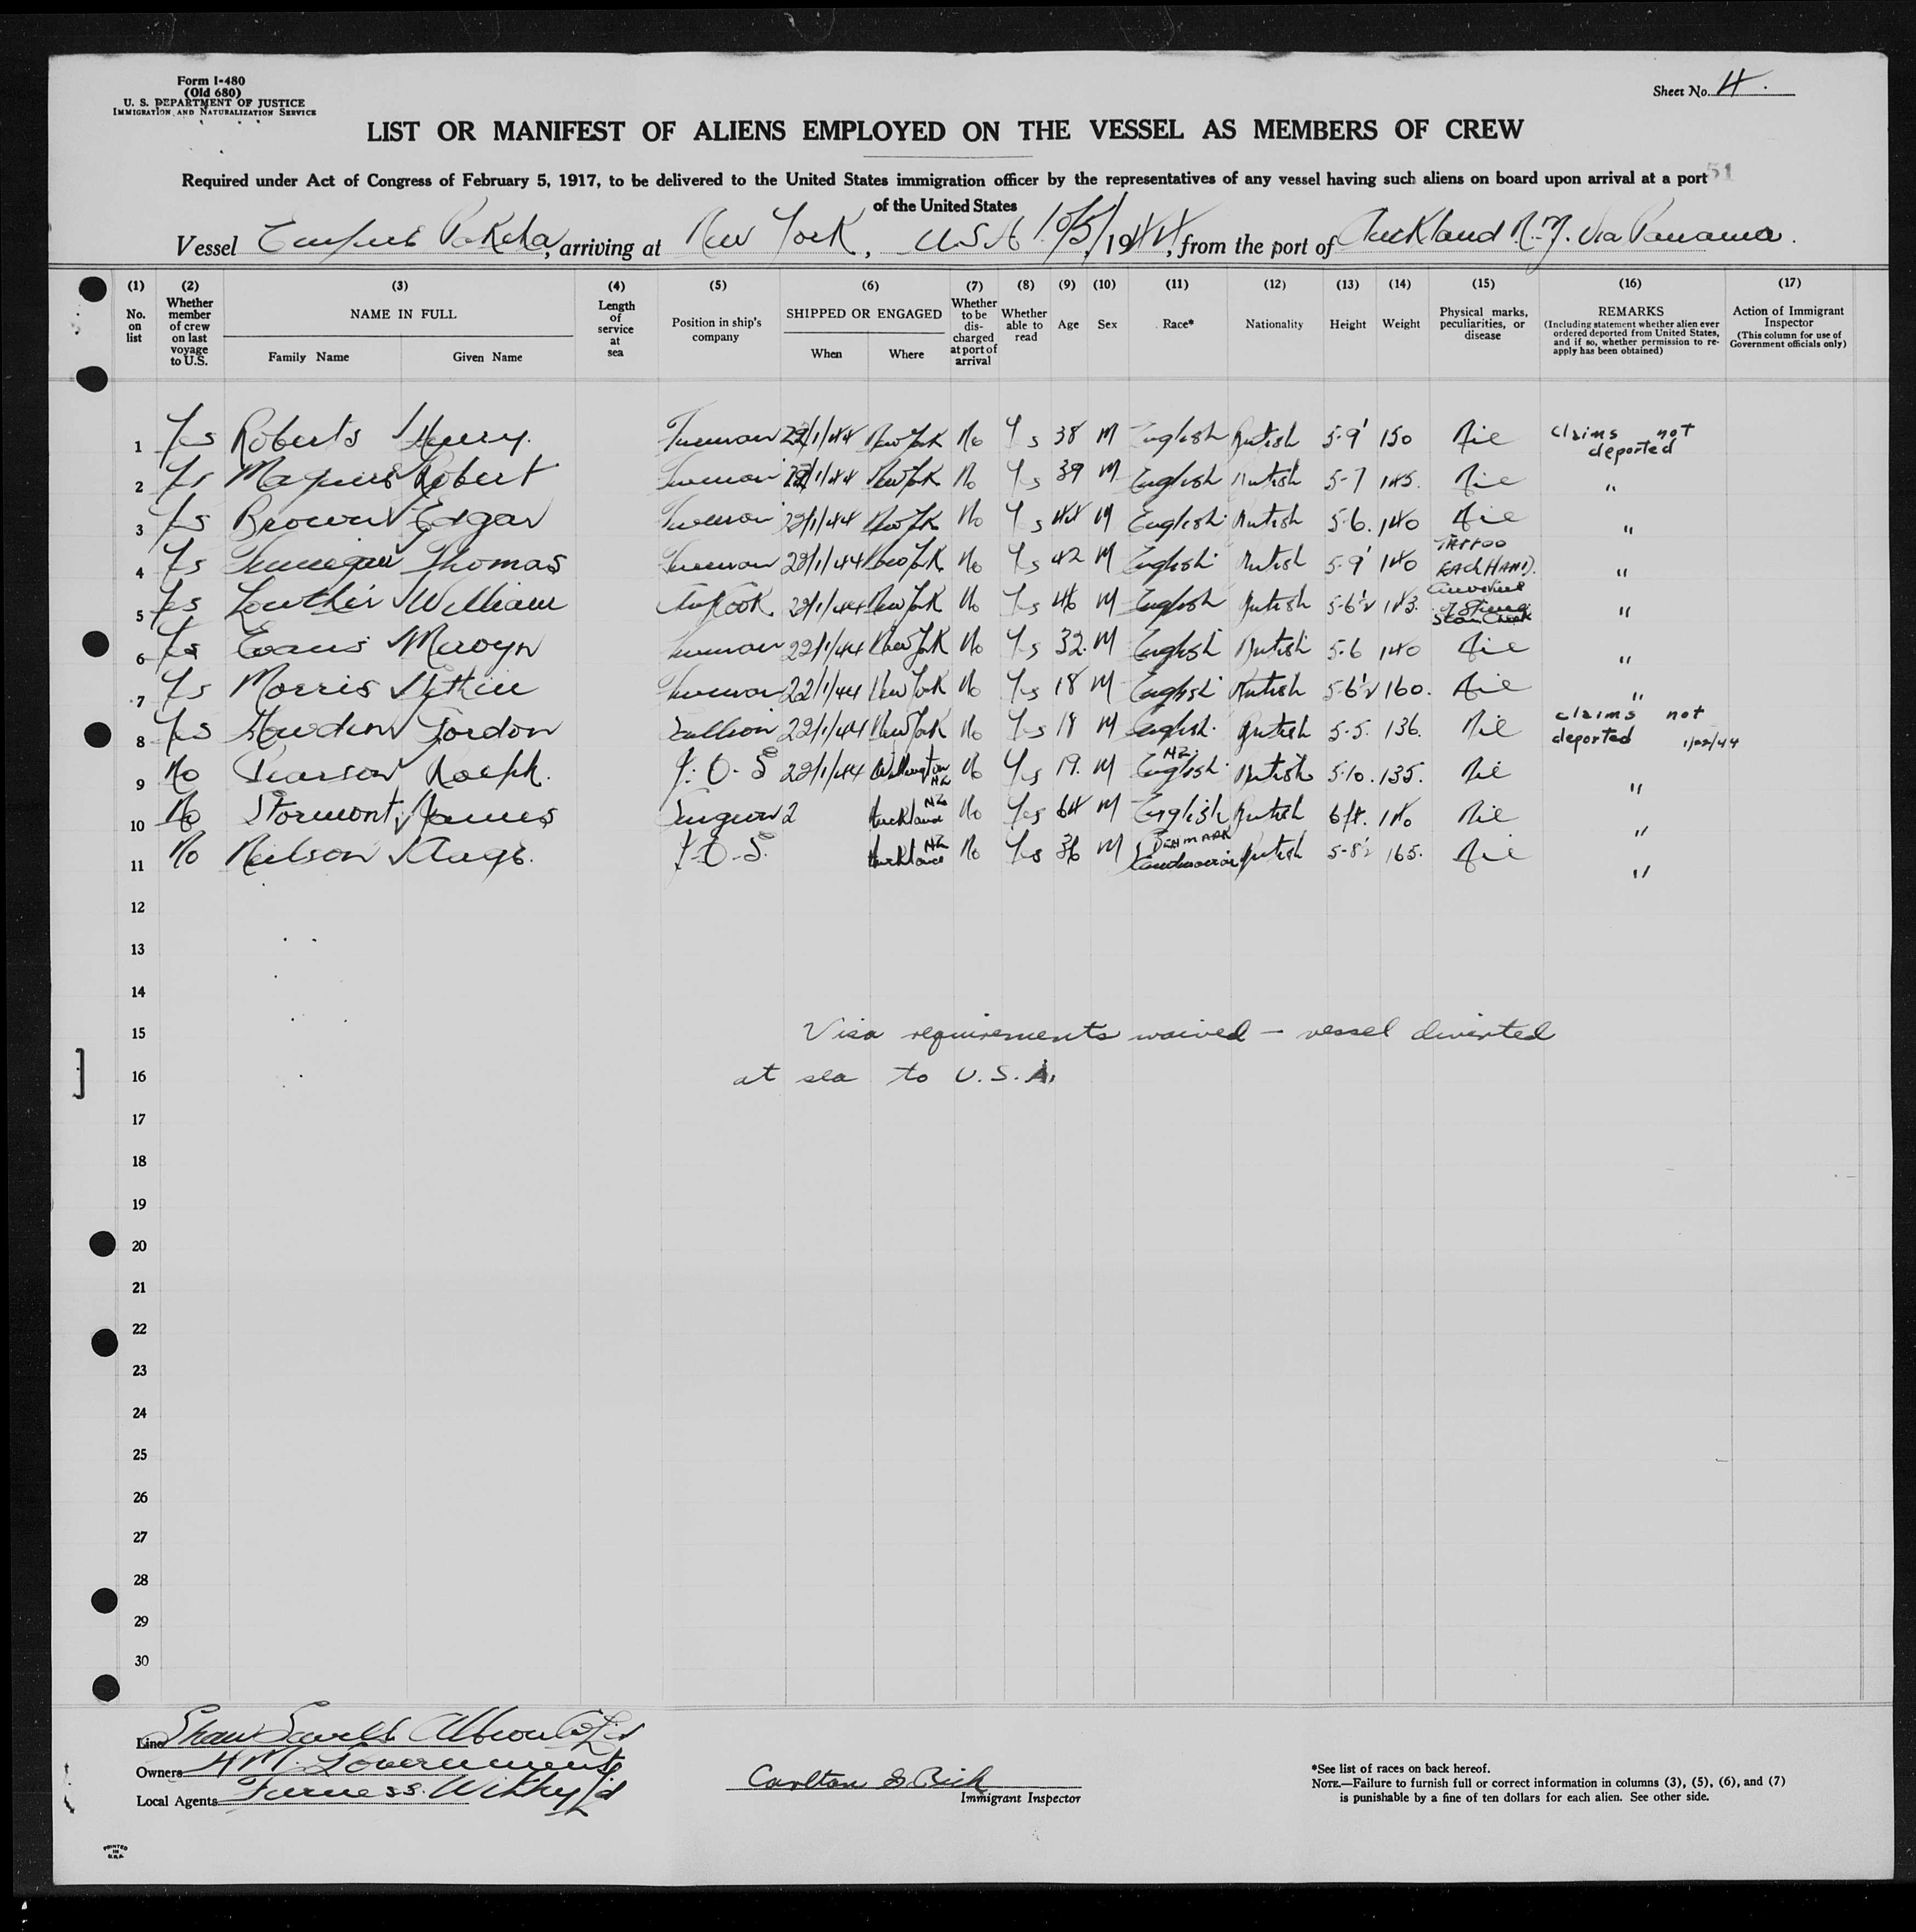 Form I-480
(Old 680)
U. S. DEPARTMENT OF JUSTICE
IMMIGRATION AND NATURALIZATION SERVICE
Sheet No. 4.
LIST OR MANIFEST OF ALIENS EMPLOYED ON THE VESSEL AS MEMBERS OF CREW
51
Required under Act of Congress of February 5, 1917, to be delivered to the United States immigration officer by the representatives of any vessel having such aliens on board upon arrival at a port
of the United States
Vessel Pakeha, arriving at New York, USA 10/5/1944, from the port of Auckland N.Z. via Panama.
(1) No. on list
(2) Whether member of crew on last voyage to U.S.
(3) NAME IN FULL Family Name Given Name
(4) Length of service at sea
(5) Position in ship's company
(6) SHIPPED OR ENGAGED When Where
(7) Whether to be discharged at port of arrival
(8) Whether able to read
(9) Age
(10) Sex
(11) Race*
(12) Nationality
(13) Height
(14) Weight
(15) Physical marks, peculiarities, or disease
(16) REMARKS (Including statement whether alien ever ordered deported from United States, and if so, whether permission to re-apply has been obtained)
(17) Action of Immigrant Inspector (This column for use of Government officials only)
1 Yes Roberts Henry. Fireman 22/1/44 New York No Yes 38 M English British 5-9 150 Nil claims not deported
2 Yes Maguire Robert Fireman 22/1/44 New York No Yes 39 M English British 5-7 145. Nil "
3 Yes Brown Edgar Fireman 22/1/44 New York No Yes 44 M English British 5-6. 140 Nil "
4 Yes Thomas Fireman 22/1/44 New York No Yes 42 M English British 5-9 140 TATTOO EACH HAND. "
5 Yes Lowther William Cook 22/1/44 New York No Yes 46 M English British 5-6½ 143. "
6 Yes Evans Mervyn Fireman 22/1/44 New York No Yes 32. M English British 5-6 140 Nil "
7 Yes Morris Fireman 22/1/44 New York No Yes 18 M English British 5-6½ 160. Nil "
8 Yes Gordon Scullion 22/1/44 New York No Yes 18 M English British 5-5. 136. Nil claims not deported 1/22/44
9 No Pearson Ralph. 22/1/44 Wellington NZ No Yes 19. M NZ English British 5-10. 135. Nil "
10 No Stormont James Surgeon 2 Auckland NZ No Yes 64 M English British 6 ft. Nil "
11 No Neilson Aage. Auckland NZ No Yes 36 M DENMARK Scandinavian British 5-8½ 165. Nil "
12
13
14
15 Visa requirements waived – vessel diverted
16 at sea to U.S.A.
17
18
19
20
21
22
23
24
25
26
27
28
29
30
Line Shaw Savill & Albion Co Ltd
Owners H M. Government
Local Agents Furness. Withy Ltd
Carlton
Immigrant Inspector
*See list of races on back hereof.
NOTE.—Failure to furnish full or correct information in columns (3), (5), (6), and (7)
is punishable by a fine of ten dollars for each alien. See other side.
PRINTED IN U.S.A.